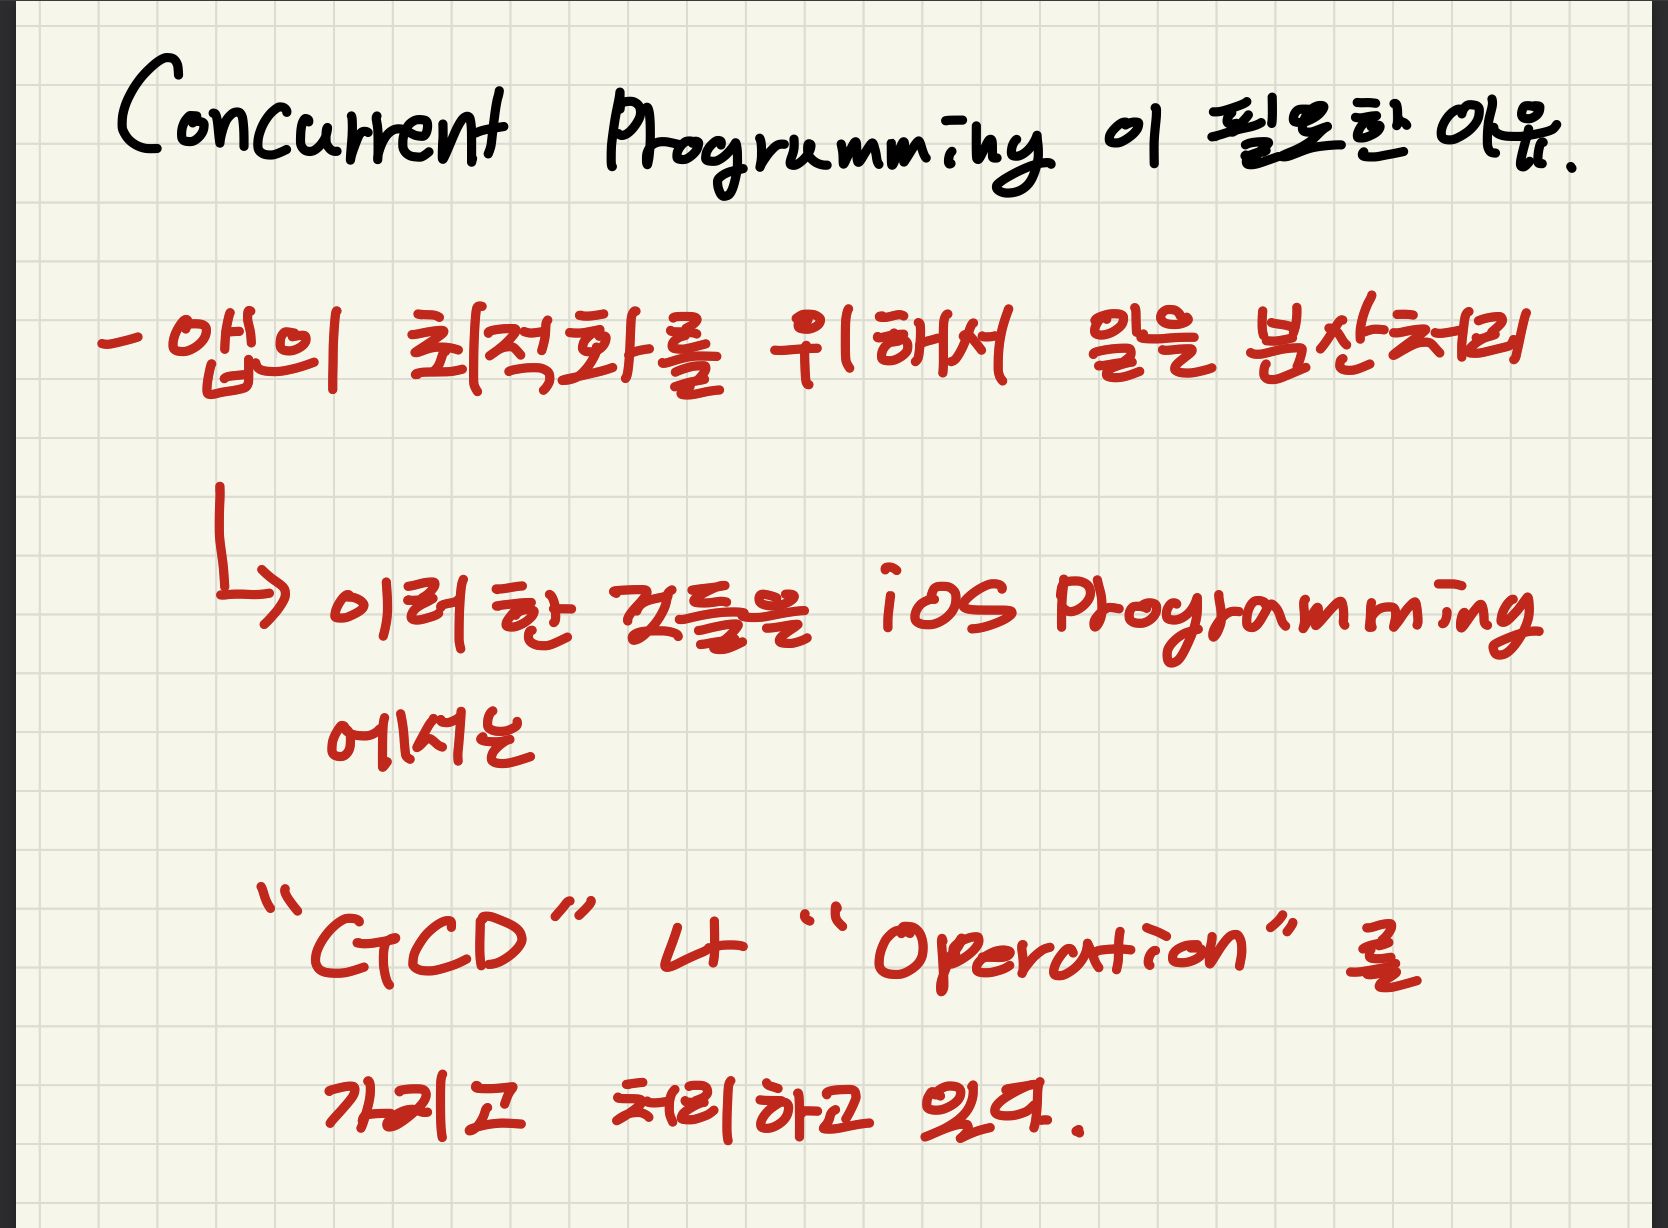 Concurrent Programming 이 필요한 이유.
- 앱의 최적화를 위해서 일을 분산처리
이러한 것들을 iOS Programming
에서는
"GCD" 나 "Operation" 를
가지고 처리하고 있다.